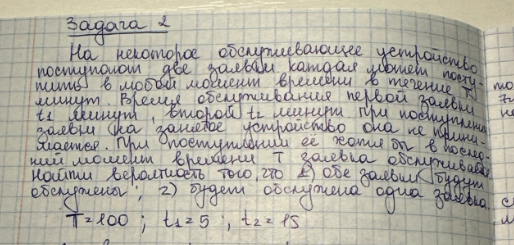 Задача 2
На некоторое обслуживающее устройство
поступают две заявки каждая может посту-
пить в любой момент времени в течение T
минут. Время обслуживания первой заявки
t₁ минут, второй t₂ минут При поступлении
заявки на занятое устройство она не прини-
мается. При поступлении её хотя бы в послед-
ний момент времени T заявка обслуживается
Найти вероятность того, что 1) обе заявки будут
обслужены; 2) будет обслужена одна заявка.
T=100 ; t₁=5 , t₂=15